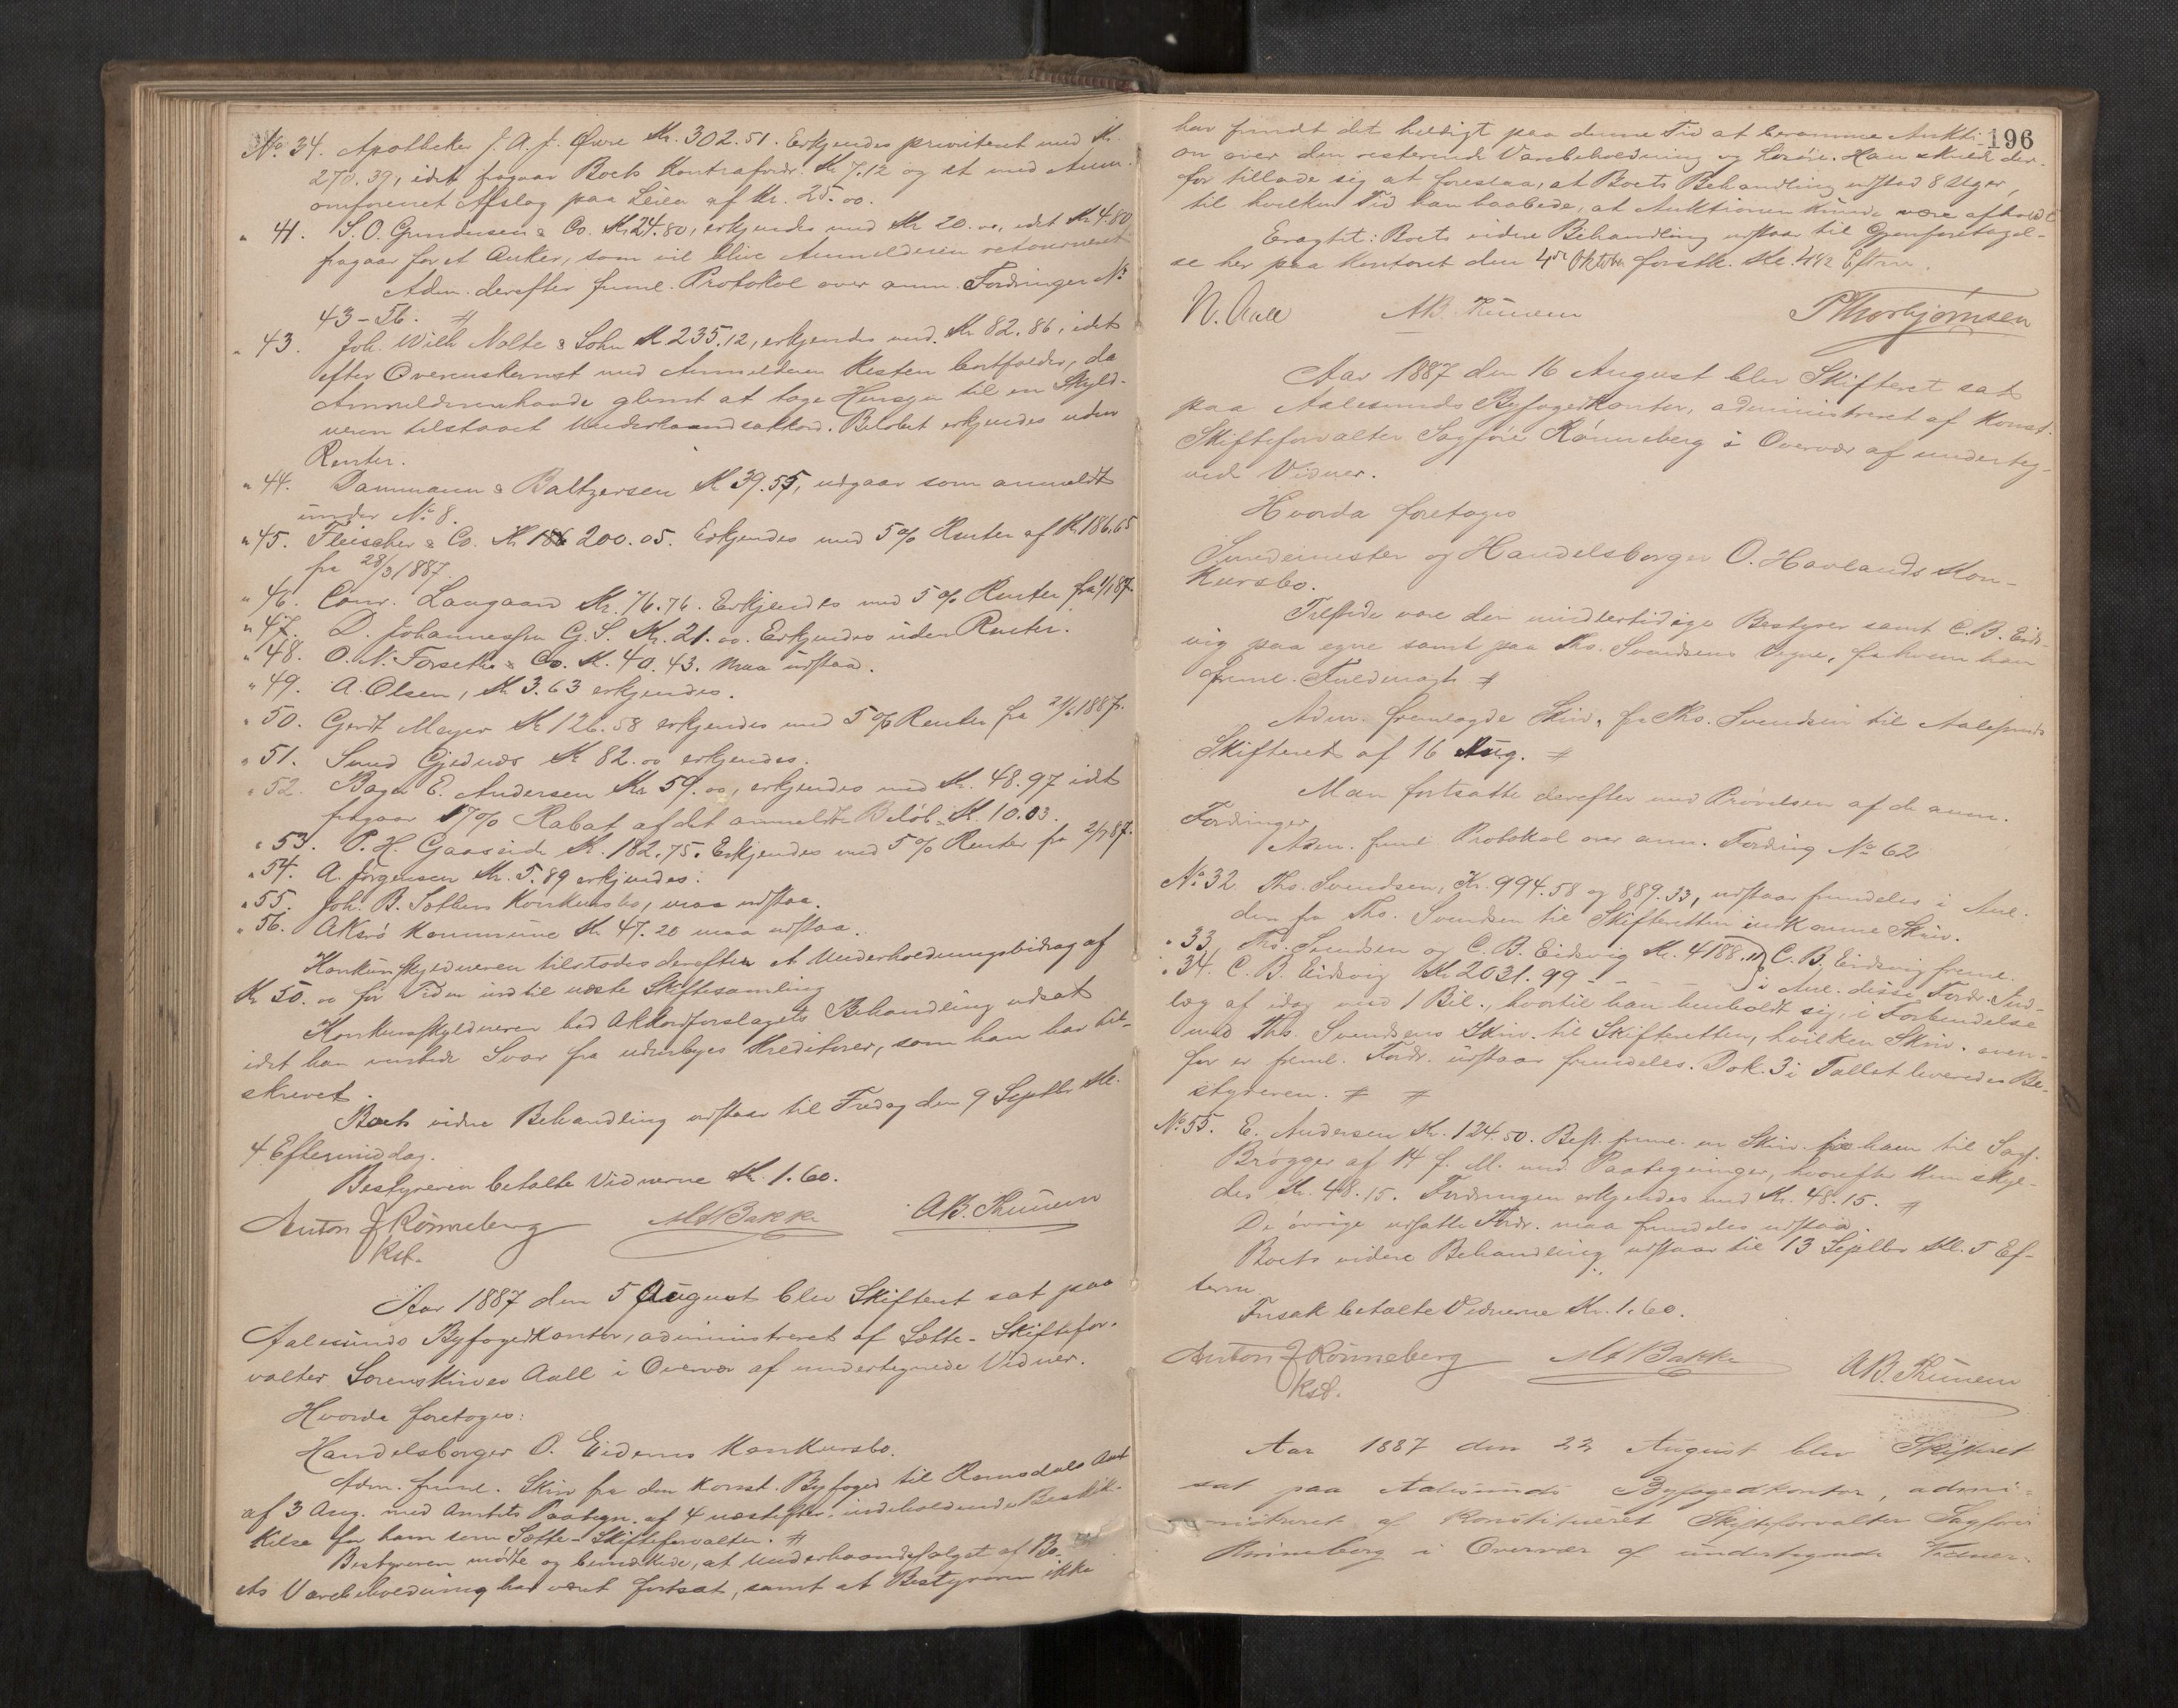 No 34. Apotheker J. A. J. Øwre Kr. 302.51. Erkjendes prioriteret med Kr.
270.39, idet fragaar Boets Kontrafordr. Kr 7.12 og et med Anm.
omforenet Afslag paa Leien af Kr. 25.00.
" 41. S. O. Gundersen & Co. Kr 24.80, erkjendes med Kr 20.00, idet Kr 4.80
fragaar for et Anker, som vil blive Anmelderen retourneret
Adm. derefter freml. Protokol over anm. Fordringer No
43-56. #
" 43. Joh. Wilh Nolte & Sohn Kr 235.12, erkjendes med Kr 82.86, idet
efter Overenskomst med Anmelderen Resten bortfalder, da
Anmelderen havde glemt at tage Hensyn til en Skyld-
neren tilstaaet Underhaandsakkord. Beløbet erkjendes uden
Renter.
" 44. Dammann & Baltzersen Kr 39.55, udgaar som anmeldt
under No 8.
" 45. Fleischer & Co. Kr 200.05. Erkjendes med 5 % Renter af Kr 186.65
fra 28/3 1887.
" 46. Conr. Langaard Kr. 76.76. Erkjendes med 5 % Renter fra 1/1 87.
" 47. D. Johannessen G. S. Kr. 21.00. Erkjendes uden Renter.
" 48. O. N. Forseth & Co. Kr. 40.43. maa udstaa.
" 49. A. Olsen, Kr 3.63 erkjendes.
" 50. Gerdt Meyer Kr 126.58 erkjendes med 5 % Renter fra 21/6 1887.
" 51. Smed Gjednæs Kr 82.00 erkjendes.
" 52. Bager E. Andersen Kr 59.00, erkjendes med Kr. 48.97 idet
fragaar 17 % Rabat af det anmeldte Beløb = Kr. 10.03.
" 53. P. H. Gaaseide Kr. 182.75. Erkjendes med 5 % Renter fra 2/7 87.
" 54. A. Jørgensen Kr. 5.89 erkjendes.
" 55. Joh. B. Konkursbo, maa udstaa.
" 56. Akerø Kommune Kr 47.20 maa udstaa.
Konkursskyldneren tilstodes derefter et Underholdningsbidrag af
Kr 50.00 for Tiden indtil næste Skiftesamling
Konkursskyldneren bad Akkordforslagets Behandling udsat
idet han ventede Svar fra udenbyes Kreditorer, som han har til-
skrevet.
Boets videre Behandling udstaar til Fredag den 9 Septbr Kl.
4 Eftermiddag.
Bestyreren betalte Vidnerne Kr. 1.60.
Anton J Rønneberg M A Bakke A B. Thunem
kst.
Aar 1887 den 5 August blev Skifteret sat paa
Aalesunds Byfogedkontor, administreret af Sætte-Skiftefor-
valter Sorenskriver Aall i Overvær af undertegnede Vidner.
Hvorda foretoges:
Handelsborger O. Eidems Konkursbo.
Adm. freml. Skriv fra den konst. Byfoged til Romsdals Amt
af 3 Aug. med Amtets Paategn. af 4 næstefter, indeholdende Beskik-
kelse for ham som Sætte-Skifteforvalter. #
Bestyreren mødte og bemærkede, at Underhaandssalget af Bo-
ets Varebeholdning har været fortsat, samt at Bestyreren ikke
196
har fundt det heldigt paa denne Tid at beramme Aukti-
on over den resterende Varebeholdning og Løsøre. Han skulde der-
for tillade sig at foreslaa, at Boets Behandling udstod 8 Uger,
til hvilken Tid han haabede, at Auktionen kunde være afholdt
Eragtet: Boets videre Behandling udstaar til Gjenforetagel-
se her paa Kontoret den 4de Oktbr. førstk. Kl. 4 1/2 Efterm.
N. Aall A B. Thunem P Thorbjørnsen
Aar 1887 den 16 August blev Skifteret sat
paa Aalesunds Byfogedkontor, administreret af Konst.
Skifteforvalter Sagfører Rønneberg i Overvær af underteg-
nede Vidner.
Hvorda foretoges
Smedemester og Handelsborger O. Havlands Kon-
kursbo.
Tilstede vare den midlertidige Bestyrer samt C. B. Eids-
vig paa egne samt paa Ths. Svendsens Vegne, fra hvem han
freml. Fuldmagt #
Adm. fremlagde Skriv. fra Ths. Svendsen til Aalesunds
Skifteret af 16 Aug. #
Man fortsatte derefter med Prøvelsen af de anm.
Fordringer
Adm. freml Protokol over anm. Fordring No 62
No 32 Ths. Svendsen, Kr. 994.58 og 889.33, udstaar fremdeles i Anl.
den fra Ths. Svendsen til Skifteretten indkomne Skriv.
" 33, Ths. Svendsen og C. B. Eidsvig Kr. 4188.11 } C. B. Eidsvig freml.
" 34. C. B. Eidsvig Kr 2031.99 - - - } i Anl. disse Fordr. Ind-
læg af idag med 1 Bil., hvortil han henholdt sig, i Forbindelse
med Ths. Svendsens Skriv. til Skifteretten, hvilken Skriv. oven-
for er freml. Fordr. udstaar fremdeles. Dok. 3 i Tallet leveredes Be-
styreren. # #
No 55. E. Andersen Kr. 124.50. Best. freml. en Skriv. fra ham til Sagf.
Brøgger af 14 f. M. med Paategninger, hvorefter kun skyl-
des Kr. 48.15. Fordringen erkjendes med Kr. 48.15. #
De øvrige udsatte Fordr. maa fremdeles udstaa.
Boets videre Behandling udstaar til 13 Septbr Kl. 5 Ef-
term.
Insak betalte Vidnerne Kr. 1.60.
Anton J Rønneberg M A Bakke A B. Thunem
kst.
Aar 1887 den 22 August blev Skifteret
sat paa Aalesunds Byfogedkontor, admi-
nistreret af Konstitueret Skifteforvalter Sagfører
Rønneberg i Overvær af undertegnede Vidner.